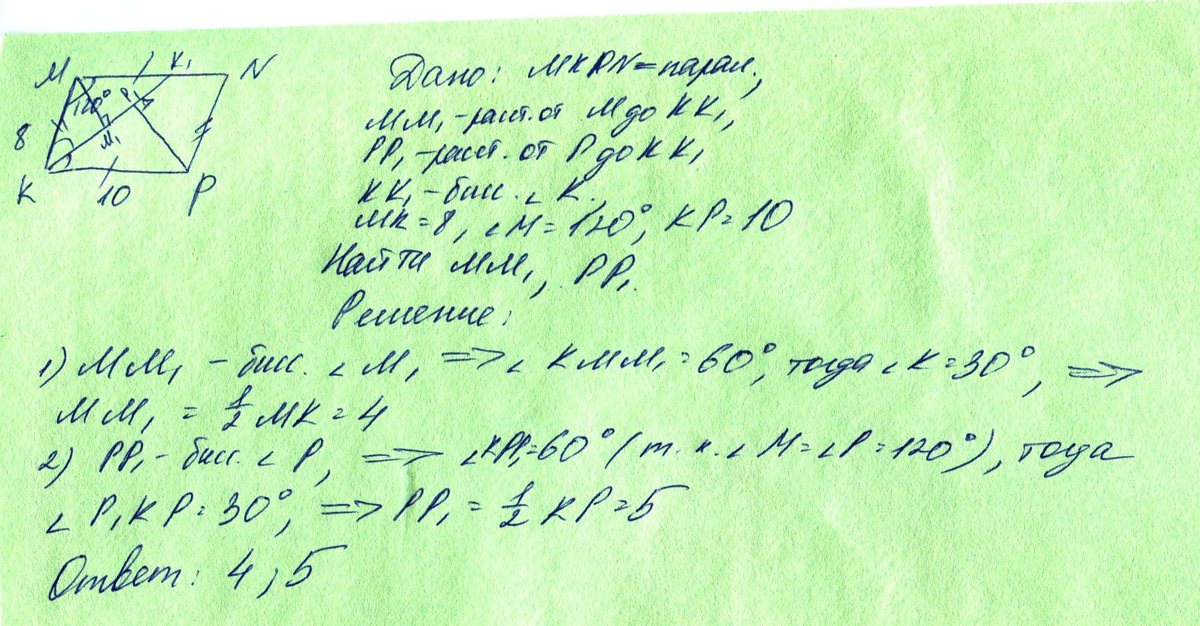 M K₁ N
120° P₁
8 M₁
K 10 P
Дано: MKPN = парал.,
MM₁ - раст. от M до KK₁,
PP₁ - раст. от P до KK₁
KK₁ - бис. ∠K.
MK = 8, ∠M = 120°, KP = 10
Найти MM₁, PP₁.
Решение:
1) MM₁ - бис. ∠M, => ∠KMM₁ = 60°, тогда ∠K = 30°, =>
MM₁ = 1/2 MK = 4
2) PP₁ - бис. ∠P, => ∠KPP₁ = 60° (т.к. ∠M = ∠P = 120°), тогда
∠P₁KP = 30°, => PP₁ = 1/2 KP = 5
Ответ: 4; 5